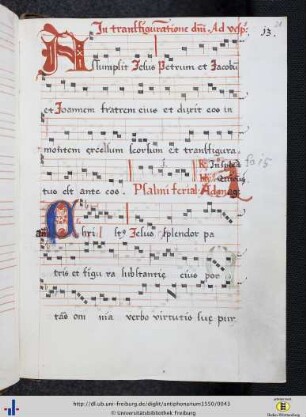 In transfiguratione dm̄. Ad vesp̄:
13.
Assumpsit Jesus Petrum et Jacobū
et Joannem fratrem eius et duxit eos in
montem excelsum seorsum et transfigura
tus est ante eos. Psalmi ferial.
Chri stꝰ Jesus splendor pa
tris et figu ra substantię eius por
tās om nia verbo virtutis suę pur
http://dl.ub.uni-freiburg.de/diglit/antiphonarium1550/0043
© Universitätsbibliothek Freiburg